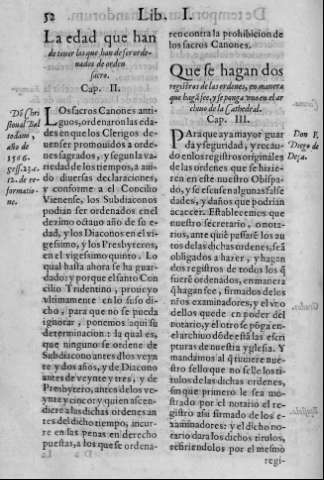 52
Lib. I.
La edad que han
de tener los que han de ser orde-
nados de orden
sacro.
Cap. II.
Dō Chri
stoual Bal
todano,
año de
1586.
sess. 23. c.
12. de re-
formatio-
ne.
LOs sacros Canones anti-
guos, ordenaron las eda-
des en que los Clerigos de-
uen ser promouidos a orde-
nes sagrados, y segun la va-
riedad de los tiempos, a aui-
do diuersas declaraciones,
y conforme a el Concilio
Vienense, los Subdiaconos
podian ser ordenados en el
dezimo octauo año de su e-
dad, y los Diaconos en el vi-
gesimo, y los Presbyteros,
en el vigesimo quinto. Lo
qual hasta ahora se ha guar-
dado: y porque el santo Con
cilio Tridentino, proueyo
vltimamente en lo suso di-
cho, para que no se pueda
ignorar, ponemos aqui su
determinacion: la qual es,
que ninguno se ordene de
Subdiacono antes dlos veyn
te y dos años, y de Diacono
antes de veynte y tres, y de
Presbytero, antes delos vey
nte y cinco: y quien ascen-
diere a las dichas ordenes an
tes del dicho tiempo, incur-
re en las penas en derecho
puestas, a los que se ordena-
ren contra la prohibicion de
los sacros Canones.
Que se hagan dos
registros de las ordenes, en manera
que hagā fee, y se ponga vno en el ar
chiuo de la Cathedral.
Cap. III.
Don P.
Diego de
Deça.
PAra que aya mayor guar
da y seguridad, y recau-
do en los registros originales
de las ordenes que se hizie-
ren en este nuestro Obispa-
do, y se escusen algunas false
dades, y daños que podrian
acaecer. Establecemos que
nuestro secretario, o nota-
rios, ante quiē passarē los au
tos de las dichas ordenes, seā
obligados a hazer, y hagan
dos registros de todos los q̄
fuerē ordenados, en manera
q̄ hagan fee, firmados de los
nr̄os examinadores, y el vno
dellos quede en poder del
notario, y el otro se pōga en
el archiuo dōde estā las escri
pturas de nuestra yglesia. Y
mandamos al q̄ tuuiere nue-
stro sello que no selle los ti-
tulos de las dichas ordenes,
sin que primero le sea mos-
trado por el notario el re-
gistro assi firmado de los e-
xaminadores: y el dicho no-
tario dara los dichos titulos,
refiriendolos por el mesmo
regi-